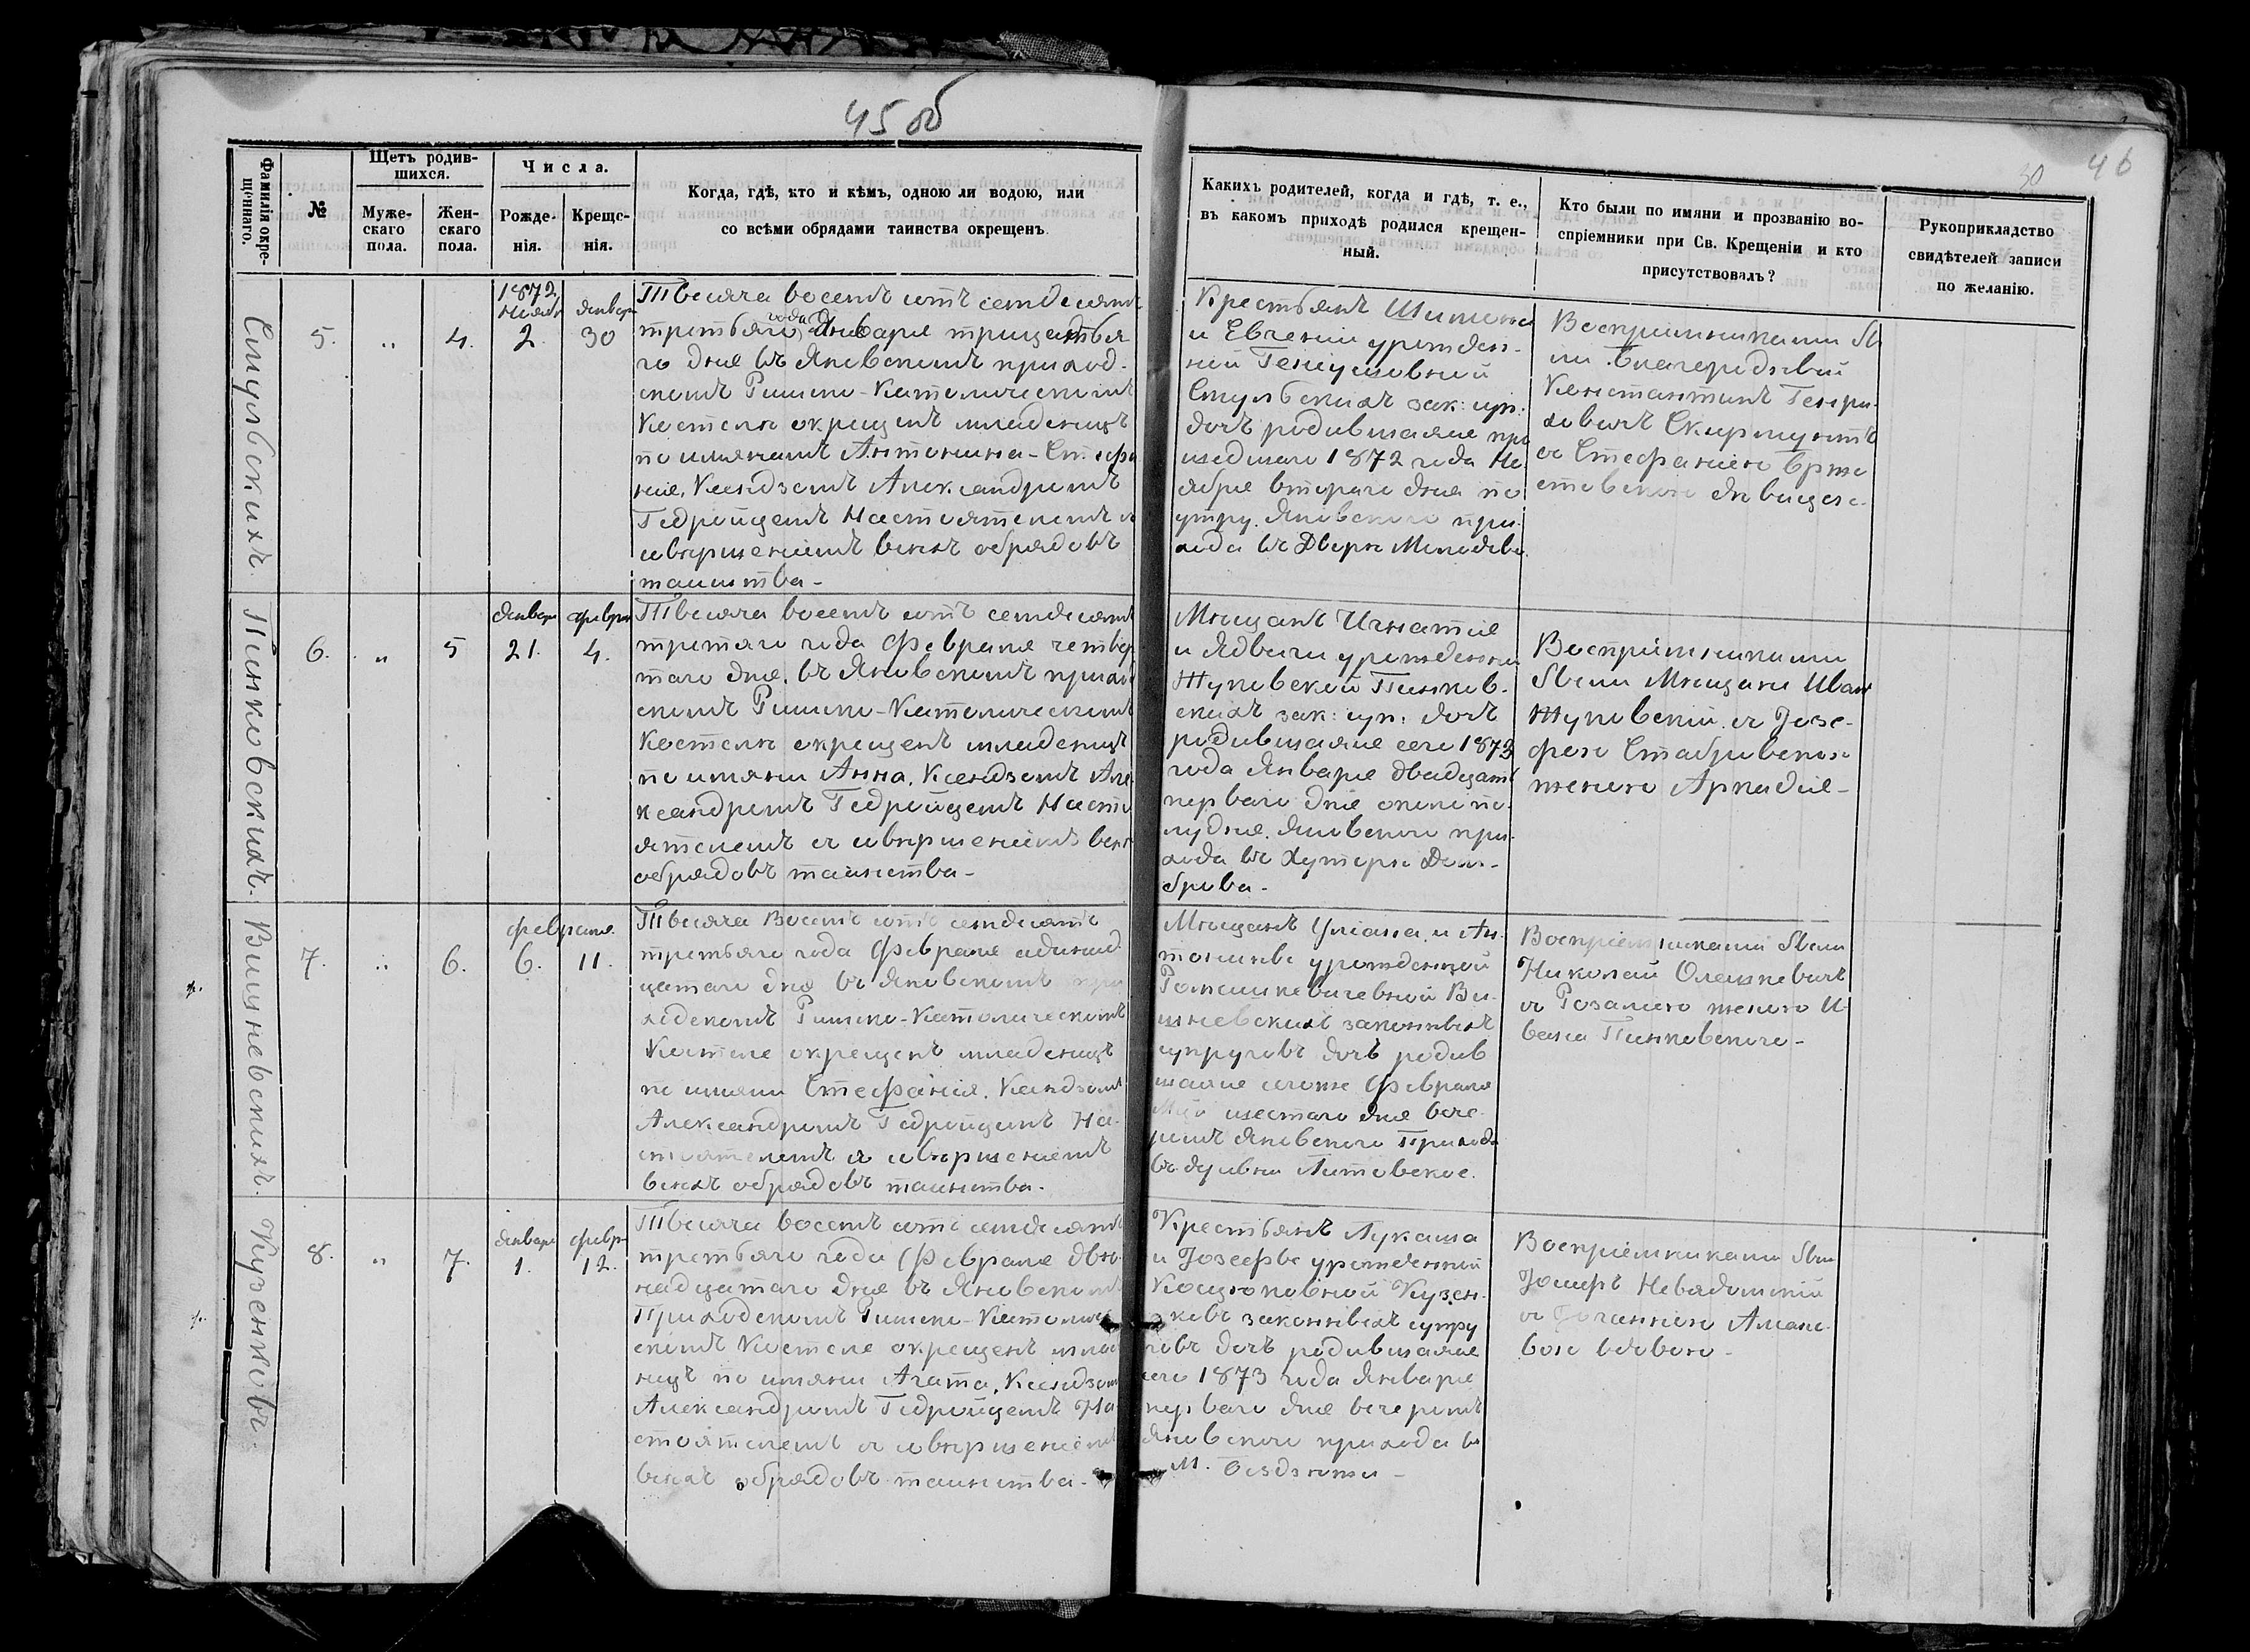 45 об
30
46
Фамилія окре-
щеннаго.
№
Щетъ родив-
шихся.
Муже-
скаго
пола.
Жен-
скаго
пола.
Числа.
Рожде-
нія.
Креще-
нія.
Когда, гдѣ, кто и кѣмъ, одною ли водою, или
со всѣми обрядами таинства окрещенъ.
Какихъ родителей, когда и гдѣ, т. е.,
въ какомъ приходѣ родился крещен-
ный.
Кто были по имяни и прозванію во-
спріемники при Св. Крещеніи и кто
присутствовалъ?
Рукоприкладство
свидѣтелей записи
по желанію.
Стульскихъ.
5.
"
4.
1872
Нояб
2.
Январ
30
Тысяча восемь сотъ семдесятъ
третьяго года Января тридцатья-
го дня въ Яновскомъ приход-
скомъ Римско-Католическомъ
Костелѣ окрещенъ младенецъ
по имянамъ Антонина-Стефа
нія, Ксендзомъ Александромъ
Гедройцемъ Настоятелемъ съ
совершеніемъ всѣхъ обрядовъ
таинства-
Крестьянъ Шимона
и Евгеніи урожден-
ной
Стульскихъ зак: суп:
дочь родившаяся про
шедшаго 1872 года Но
ября втораго дня по
утру. Яновскаго при-
хода въ Дворѣ
Воспріемниками бы
ли Благородный
Константинъ Генри-
ховичъ Скирмунтъ
съ Стефаніею Брже
стовскою дѣвицею-
Пинковскихъ.
6.
"
5
Январ
21.
февра
4.
Тысяча восемь сотъ семдесятъ
третяго года Февраля четвер
таго дня, въ Яновскомъ приход
скомъ Римско-Католическомъ
Костелѣ окрещенъ младенецъ
по имяни Анна, Ксендзомъ Але
ксандромъ Гедройцемъ Насто
ятелемъ съ совершеніемъ всѣх
обрядовъ таинства-
Мѣщанъ Игнатія
и Ядвиги урожденной
Жуковской Пинков-
скихъ зак: суп: дочь
родившаяся сего 1873
года Января двадцать
перваго дня около по-
лудня. Яновскаго при-
хода въ Хуторѣ Дом-
брова-
Воспріемниками
были Мѣщане Иван
Жуковскій съ Іозе-
фою Стабровскою
женою Аркадія-
Вишневскихъ.
7.
"
6.
февраля
6.
11.
Тысяча Восемь сотъ семдесятъ
третьяго года Февраля одинад
цатаго дня въ Яновскомъ при
ходскомъ Римско-Католическомъ
Костеле окрещенъ младенецъ
по имяни Стефанія. Ксендзомъ
Александромъ Гедройцемъ На-
стоятелемъ съ совершеніемъ
всѣхъ обрядовъ таинства.
Мѣщанъ Уліана и Ан-
тонины урожденной
Ромашкевичевной Ви-
шневскихъ законныхъ
супруговъ дочь родив
шаяся сегоже Февраля
М-ца шестаго дня вече-
ромъ Яновскаго Прихода
въ Литовское.
Воспріемниками были
Николай Олешкевичъ
съ Розаліею женою И-
вана Пинковскаго-
Кузенковъ.
8.
"
7.
Январ
1.
февр
12.
Тысяча восемь сотъ семдесятъ
третьяго года Февраля двѣ-
надцатаго дня въ Яновскомъ
Приходскомъ Римско-Католиче
скомъ Костеле окрещенъ младе
нецъ по имяни Агата, Ксендзомъ
Александромъ Гедройцемъ На
стоятелемъ съ совершеніемъ
всѣхъ обрядовъ таинства-
Крестьянъ Лукаша
и Іозефы урожденной
Коцюковной Кузен-
ковъ законныхъ супру
говъ дочь родившаяся
сего 1873 года Января
перваго дня вечеромъ
Яновскаго прихода въ
м. Бездѣжи-
Воспріемниками были
Іосифъ Невядомскій
съ Іоганною
вдовою-